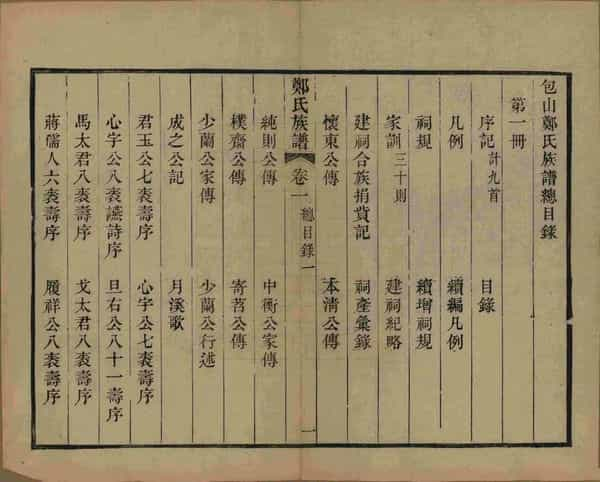 包山鄭氏族譜總目錄
第一冊
序記 計九首 目錄
凡例 續編凡例
祠規 續增祠規
家訓 三十則 建祠紀略
建祠合族捐貲記 祠產彙錄
懷東公傳 本淸公傳
鄭氏族譜 卷一 總目錄一 一
純則公傳 中衡公家傳
樸齋公傳 寄茗公傳
少蘭公家傳 少蘭公行述
成之公記 月溪歌
君玉公七袠壽序 心字公七袠壽序
心字公八袠讌詩序 旦右公八十一壽序
馬太君八袠壽序 戈太君八袠壽序
蔣孺人六袠壽序 履祥公八袠壽序